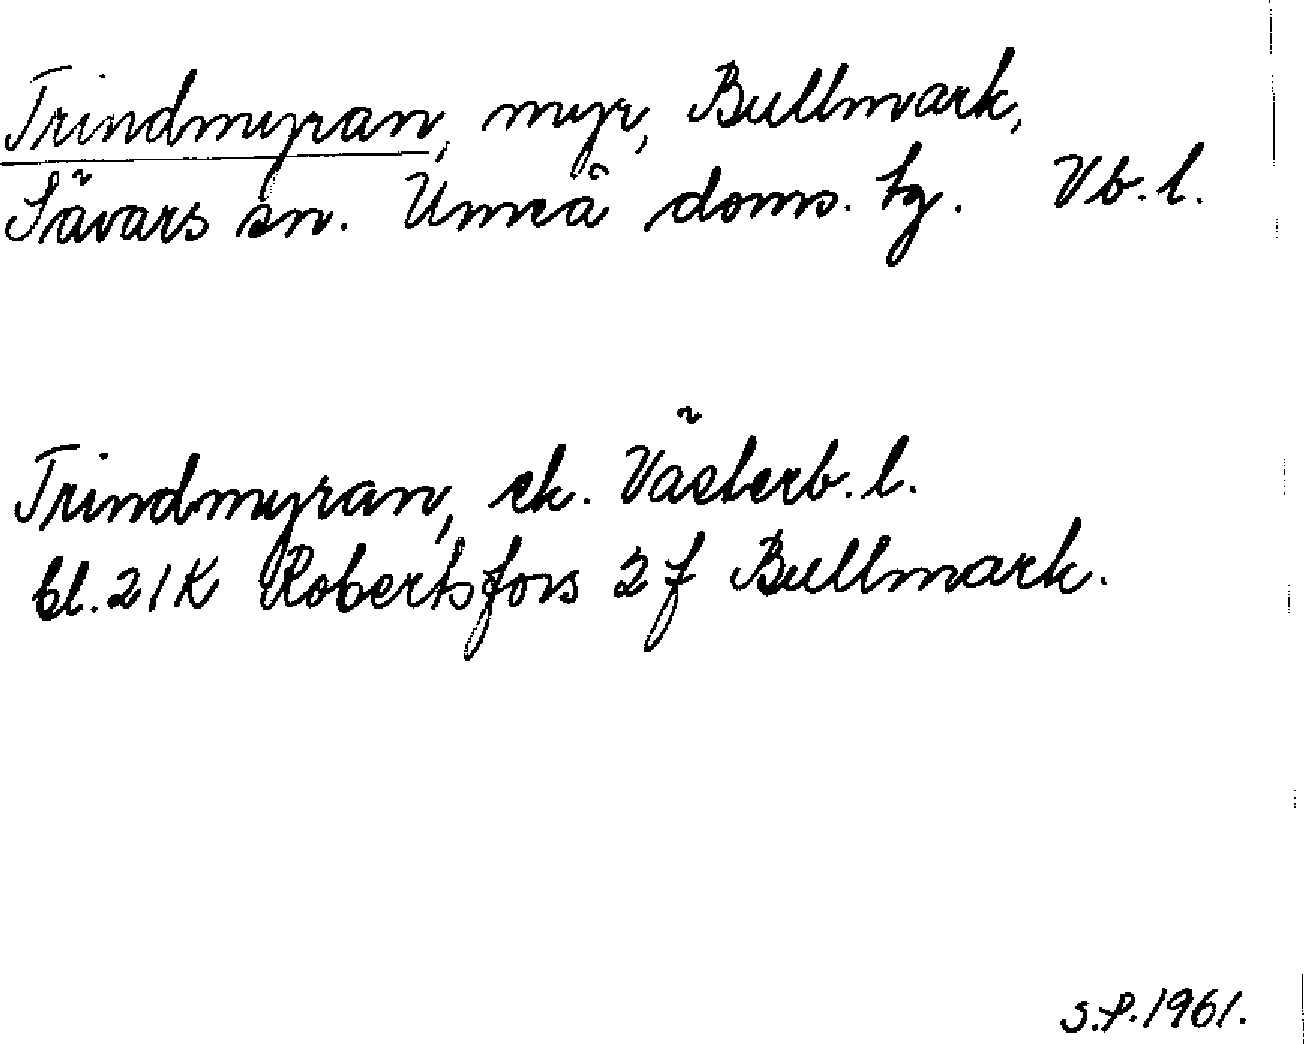 Trindmyran, myr, Bullmark,
Sävars sn. Umeå doms. tg. Vb. l.
Trindmyran, ek. Västerb. l.
bl. 21K Robertsfors 2f Bullmark.
S.P. 1961.